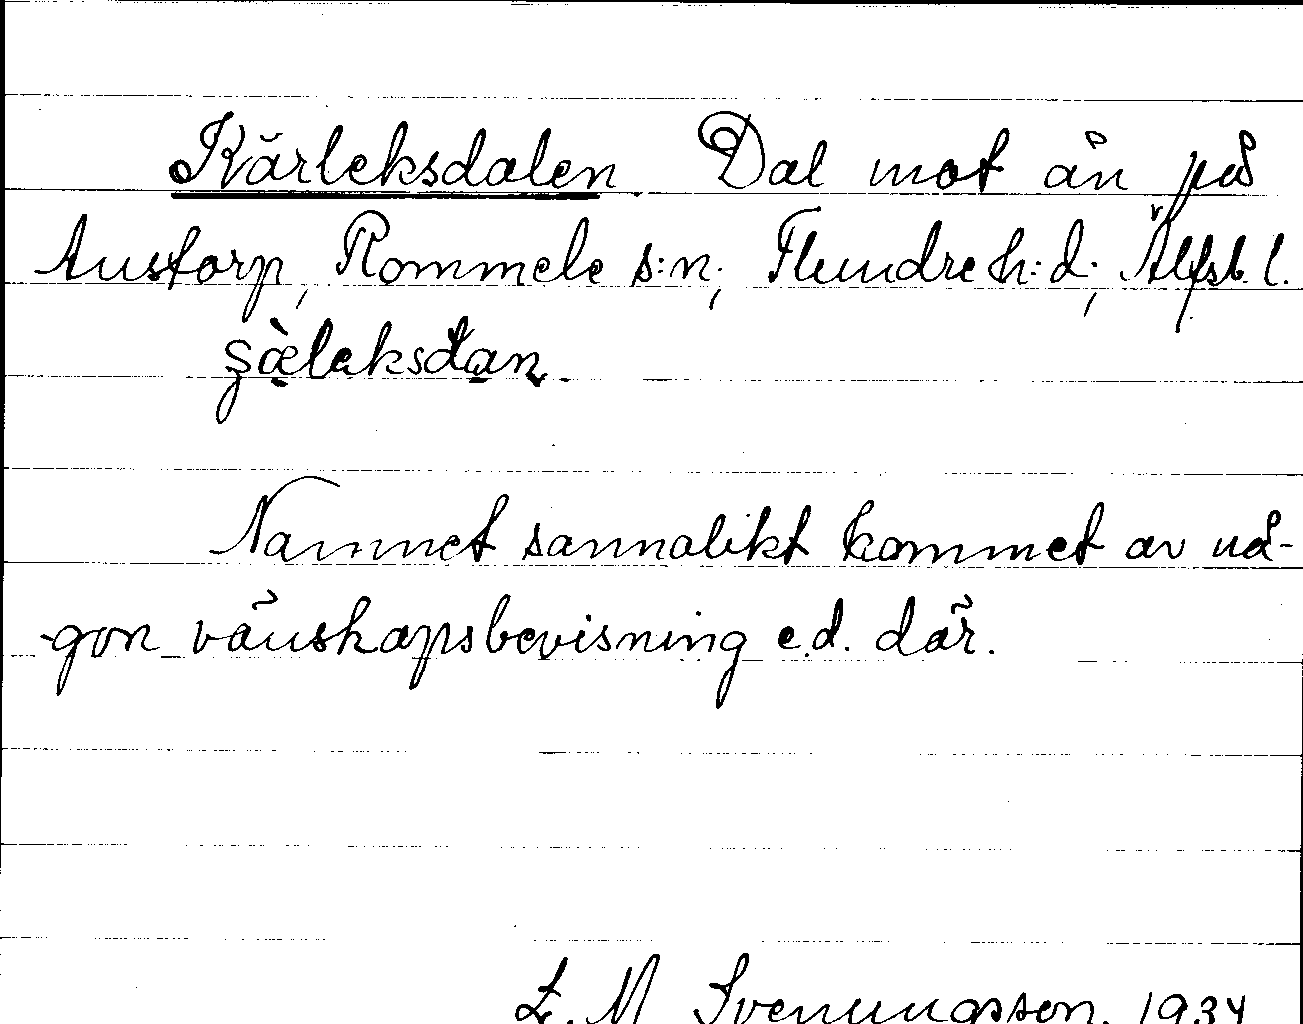 Kärleksdalen. Dal mot ån på
Anstorp, Rommele s:n; Flundre h:d; Älfsb. l.
Namnet sannolikt kommet av nå-
gon vänskapsbevisning e.d. där.
L. M Svenungsson. 1934